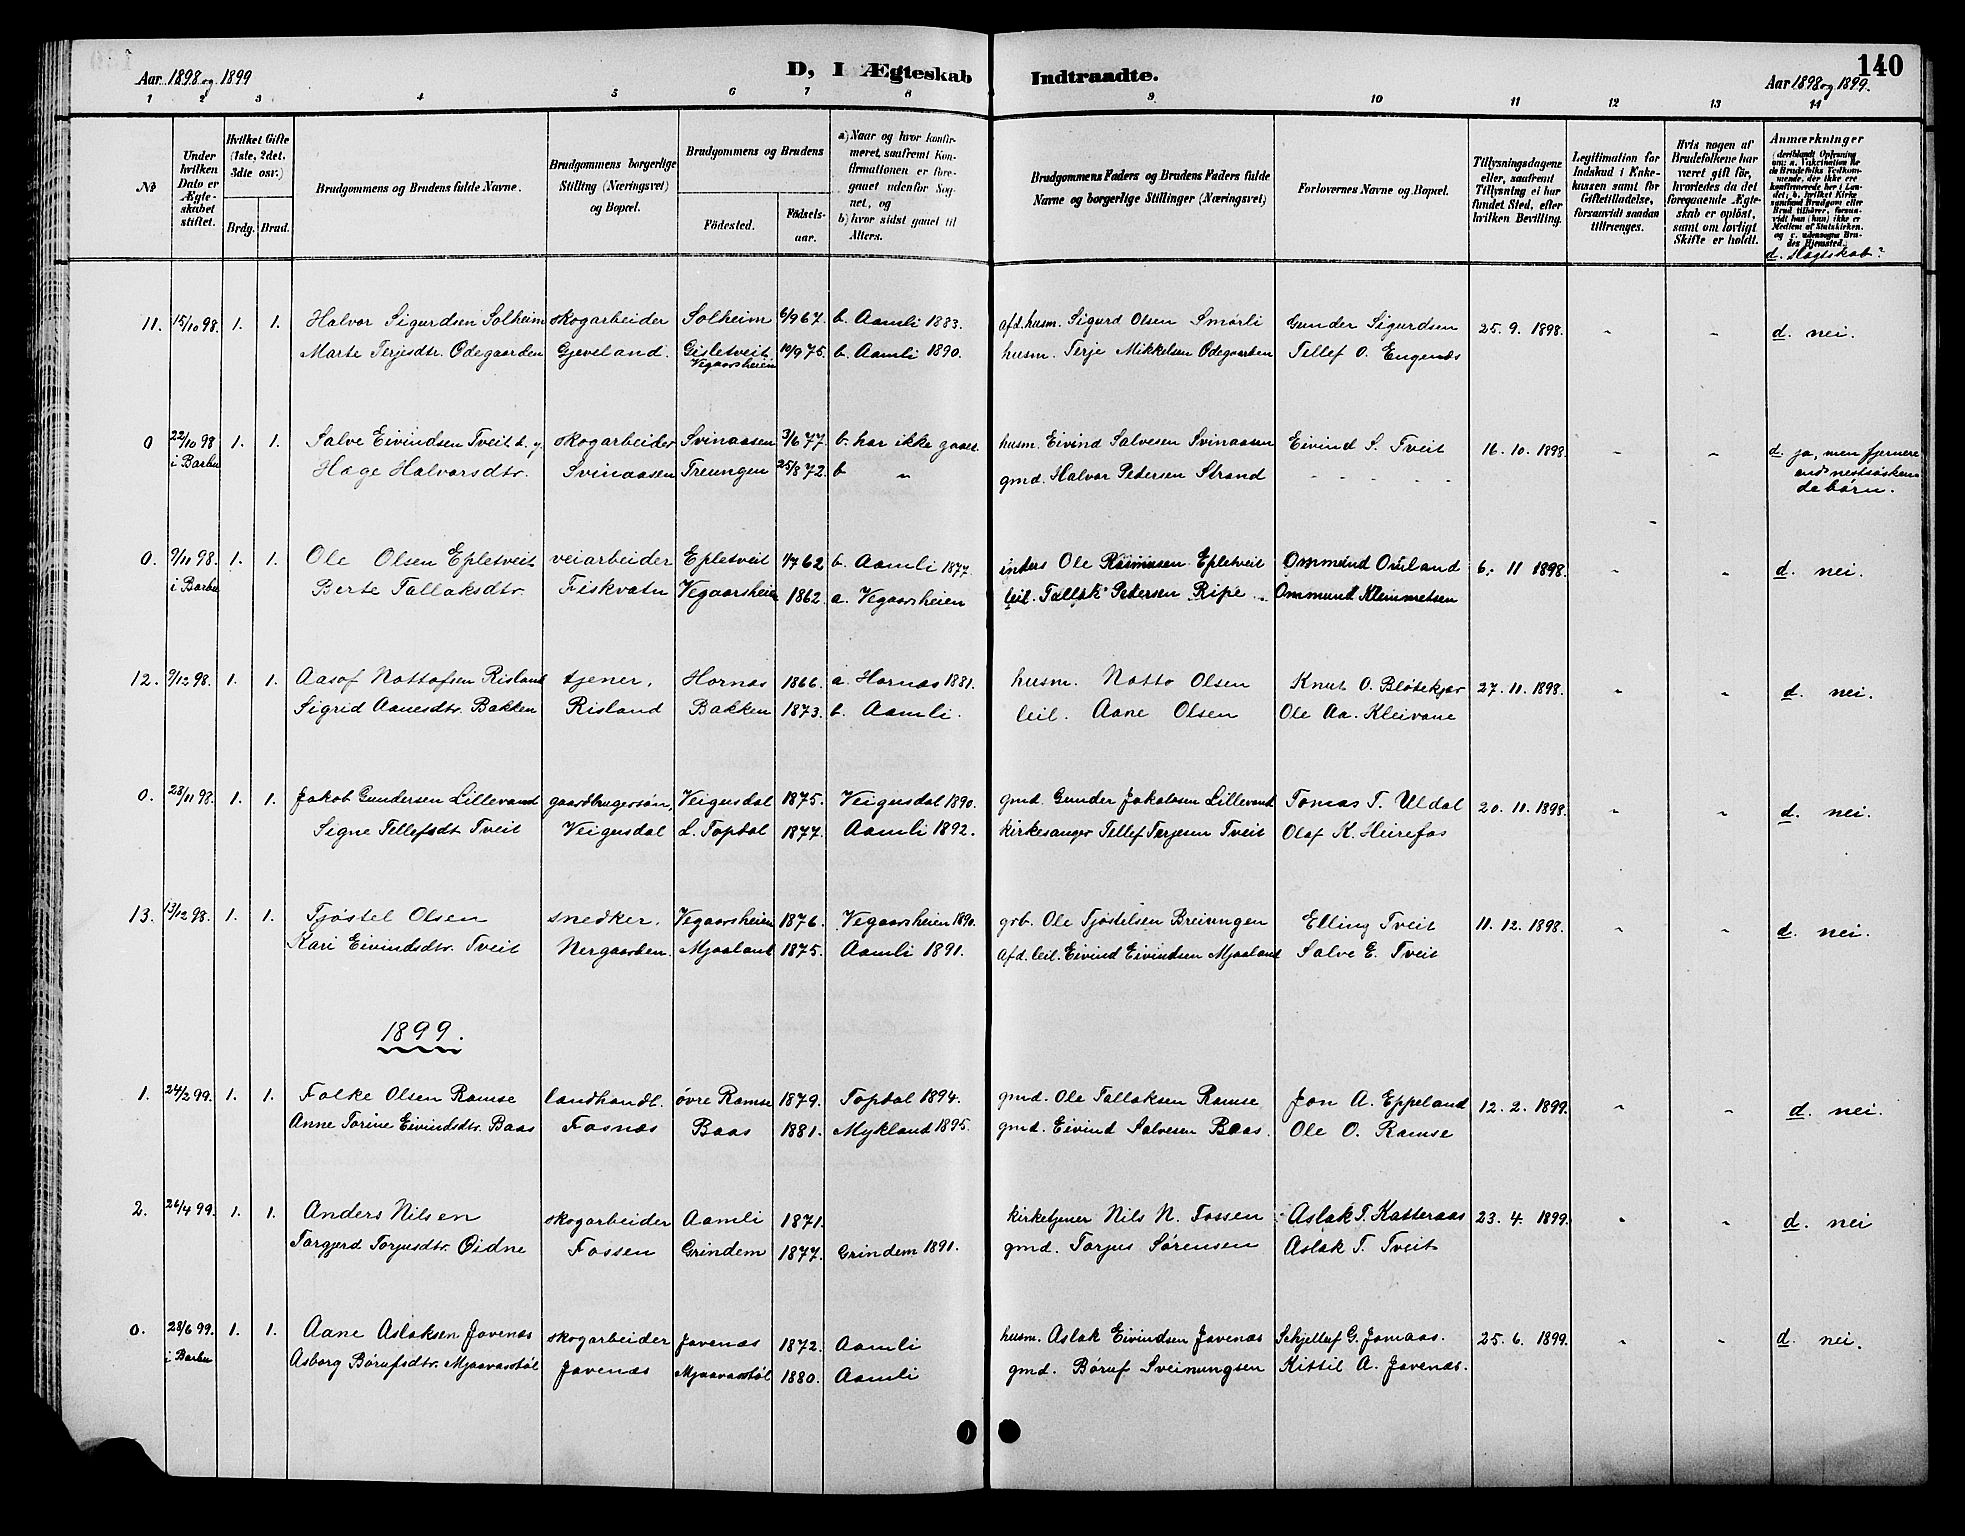 140
Aar 1898 og 1899
D, I Ægteskab Indtraadte.
Aar 1898 og 1899.
1 2 3 4 5 6 7 8 9 10 11 12 13 14
No
Under hvilken Dato er Ægteskabet stiftet.
Hvilket Gifte (1ste, 2det, 3dte osv.)
Brdg. Brud.
Brudgommens og Brudens fulde Navne.
Brudgommens borgerlige Stilling (Næringsvei) og Bopæl.
Brudgommens og Brudens
Fødested. Fødselsaar.
a) Naar og hvor konfirmeret, saafremt Konfirmationen er foregaaet udenfor Sognet, og
b) hvor sidst gaaet til Alters.
Brudgommens Faders og Brudens Faders fulde Navne og borgerlige Stillinger (Næringsvei)
Forlovernes Navne og Bopæl.
Tillysningsdagene eller, saafremt Tillysning ei har fundet Sted, efter hvilken Bevilling.
Legitimation for Indskud i Enkekassen samt for Giftetilladelse, forsaavidt saadan tiltrænges.
Hvis nogen af Brudefolkene har været gift før, hvorledes da det foregaaende Ægteskab er opløst, samt om lovligt Skifte er holdt.
Anmærkninger (deriblandt Oplysning om: a. Vakcination for de Brudefolks Vedkommende, der ikke ere konfirmerede her i Landet; b. hvilket Kirkesamfund Brudgom eller Brud tilhører, forsaavidt han (hun) ikke er Medlem af Statskirken, og c. udensogns Brudes Hjemsted.)
d. Slægtskab?
11. 15/10 98. 1. 1. Halvor Sigurdsen Solheim skogarbeider Solheim 6/9 67. b. Aamli 1883. afd. husm. Sigurd Olsen Smörli Gunder Sigurdsen 25. 9. 1898. " " d. nei.
Marte Terjesdtr. Ødegaarden Gjeveland. Gisletveit, Vegaarsheien 10/9 75. b. Aamli 1890. husm. Terje Mikkelsen Ødegaarden Tellef O. Engenes
0 22/10 98 1. 1. Salve Eivindsen Tveit d. y. skogarbeider Svinaasen 3/6 77. b. har ikke gaaet. husm. Eivind Salvesen Svinaasen Eivind S. Tveit 16. 10. 1898. " " d. ja, men fjernere
i Barbu Hæge Halvorsdtr. Svinaasen Treungen 25/8 72. b " gmd. Halvor Pedersen Strand - - - - - end nestsøskende børn.
0. 9/11 98. 1. 1. Ole Olsen Epletveit veiarbeider Epletveit 1/7 62 b. Aamli 1877. inders Ole Rasmusen Epletveit Ommund Ouland 6. 11 1898. " " d. nei.
i Barbu Berte Tallaksdtr. Fiskvatn Vegaarsheien 1862. a. Vegaarsheien leil. Tallak Pedersen Ripe Ommund Klemmetsen
12. 9/12 98. 1. 1. Aasof Nottofsen Risland tjener, Hornæs 1866. a. Hornæs 1881. husm. Notto Olsen Knut O. Bløtekjær 27. 11. 1898. " " d. nei.
Sigrid Aanesdtr. Bakken Risland Bakken 1873. b. Aamli. leil. Aane Olsen Ole Aa. Kleivane
0. 28/11 98. 1. 1. Jakob Gundersen Lillevand gaardbrugersøn, Veigusdal 1875. Veigusdal 1890. gmd. Gunder Jakobsen Lillevand Tomas T. Uldal 20. 11. 1898. " " d. nei.
Signe Tellefsdt Tveit Veigusdal L. Topdal 1877. Aamli 1892. kirkesanger Tellef Terjesen Tveit Olaf K. Heirefos
13. 13/12 98. 1. 1. Tjøstel Olsen snedker, Vegaarsheien 1876. Vegaarsheien 1890. grb. Ole Tjøstelsen Breiungen Elling Tveit 11. 12. 1898. " " d. nei.
Kari Eivindsdtr. Tveit Nergaarden. Mjaaland 1875. Aamli 1891. afd. leil. Eivind Eivindsen Mjaaland Salve E. Tveit
1899.
1. 24/2 99. 1. 1. Folke Olsen Ramse landhandl. øvre Ramse 1879. Topdal 1894. gmd. Ole Tallaksen Ramse Jon A. Eppeland 12. 2. 1899. " " d. nei.
Anne Torine Eivindsdtr. Baas Fosnæs Baas 1881. Mykland 1895. gmd. Eivind Salvesen Baas. Ole O. Ramse
2. 26/4 99. 1. 1. Anders Nilsen skogarbeider Aamli 1871. kirketjener Nils N. Fossen Aslak T. Katteraas 23. 4. 1899. " " d. nei
Torgjerd Torjusdtr. Øidne Fossen Grindem 1877. Grindem 1891. gmd. Torjus Sørensen Aslak T. Tveit
0. 28/6 99. 1. 1. Aane Aslaksen Jovenæs skogarbeider Jovenæs 1872. Aamli husm. Aslak Eivindsen Jovenæs Schjellef G. Jomaas. 25. 6. 1899. " " d. nei.
i Barbu Asborg Børufsdtr. Mjaavasstøl Jovenæs Mjaavasstøl 1880. Aamli gmd. Børuf Sveinungsen Kittil A. Jovenæs.